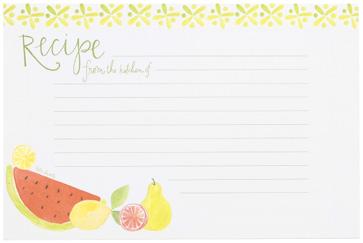 Recipe
from the kitchen of